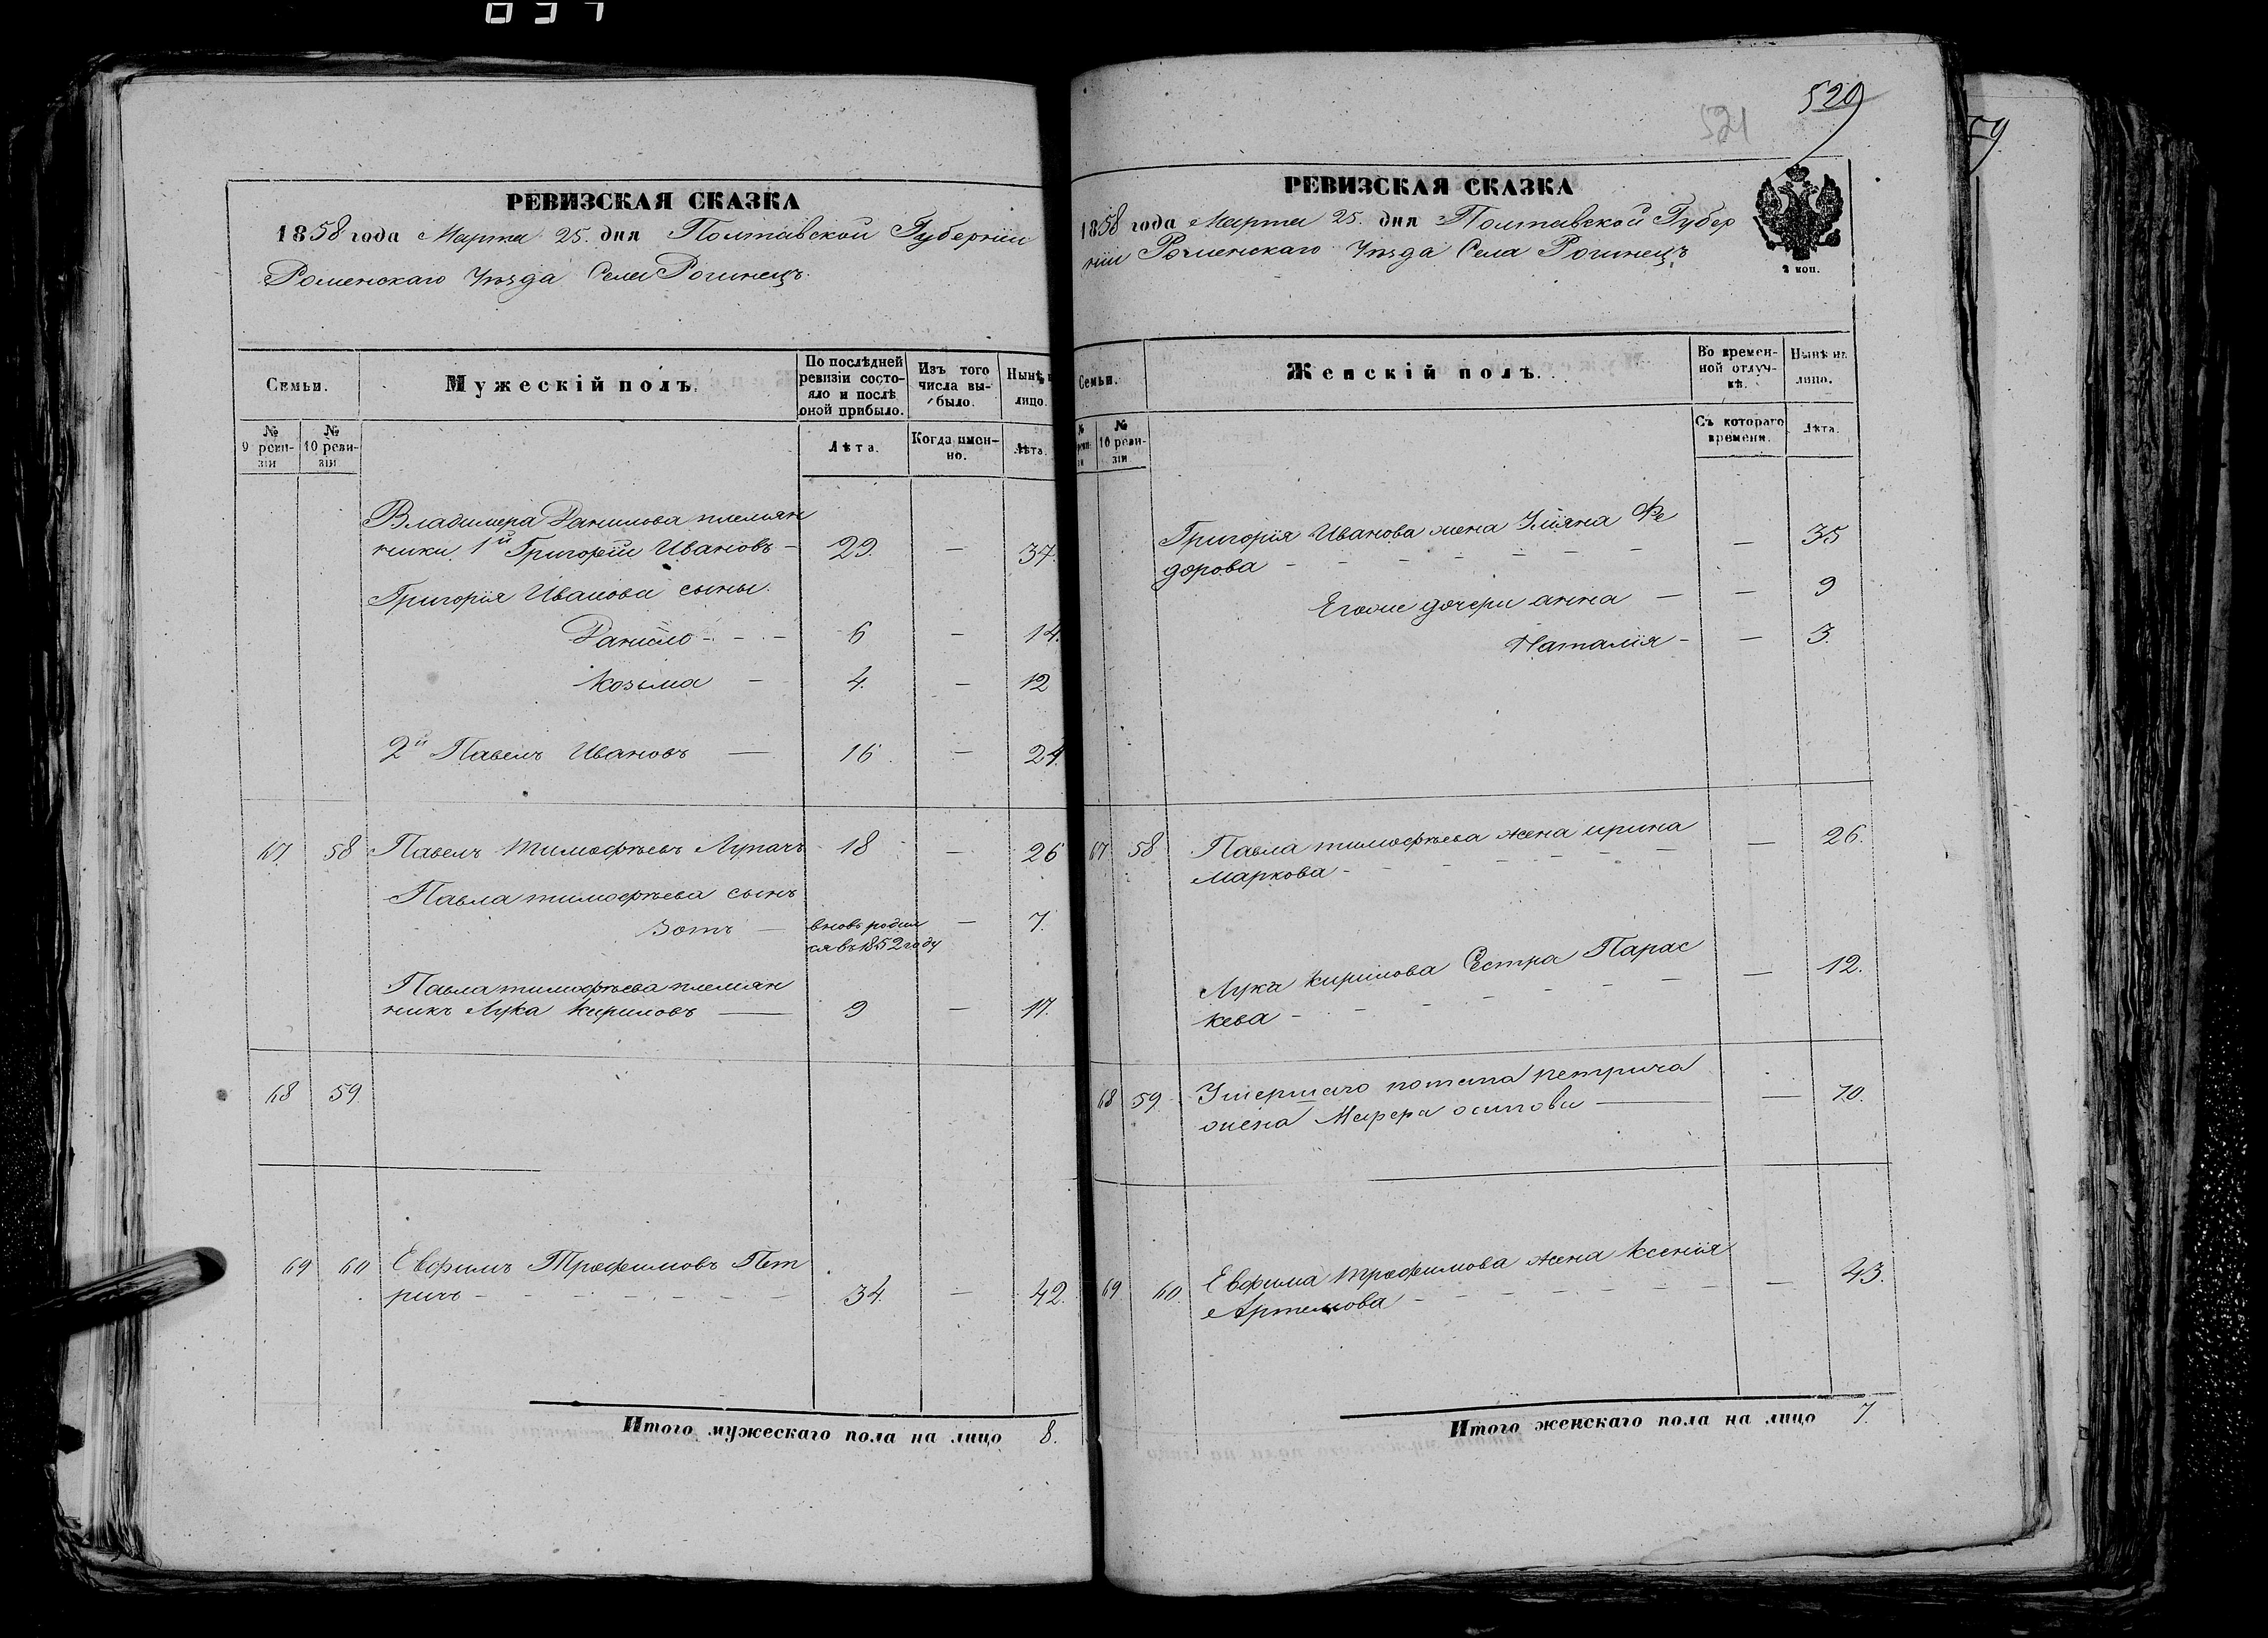 РЕВИЗСКАЯ СКАЗКА
1858 года Марта 25. дня Полтавской Губерніи
Роменскаго Уѣзда Села Рогинецъ.
Семьи.
Мужескій полъ.
По послѣдней ревизіи состояло и послѣ оной прибыло.
Изъ того числа выбыло.
Нынѣ
лицо.
№ 9 ревизіи
№ 10 ревизіи
Лѣта.
Когда именно.
Лѣта.
Владимера Данилова племян
ники 1й Григорій Ивановъ – 29. – 37.
Григорія Иванова сыны.
Данило - - - 6 – 14.
Козьма – 4. – 12
2й Павелъ Ивановъ — 16. – 24.
67. 58 Павелъ Тимофѣевъ Лупачъ 18 – 26
Павла тимофѣева сынъ
Зотъ — вновь родил – 7.
ся въ 1852 году
Павла тимофѣева племян
никъ Лука Кириловъ — 9 – 17.
68 59
69 60 Евфимъ Трофимовъ Пет
ричъ - - - - - - - 34. – 42.
Итого мужескаго пола на лицо 8.
520
521
РЕВИЗСКАЯ СКАЗКА
1858 года Марта 25. дня Полтавской Губер
ніи Роменскаго Уѣзда Села Рогинецъ
2 коп.
Семьи.
Женскій полъ.
Во временной отлучкѣ.
Нынѣ на лицо.
№ 10 ревизіи
Съ котораго времени.
Лѣта.
Григорія Иванова жена Уліяна Фе
дорова - - - - - - – 35
Его же дочери анна — – 9
Наталія – – 3.
67. 58 Павла тимофѣева жена ирина
Маркова - - - - - - — 26.
Луки Кирилова Сестра Парас
кева - - - - - - — 12.
68 59. Умершаго потапа петрича
жена Марфа осипова —— — 70.
69 60. Евфима трофимова жена Ксенія
Артемова - - - - - - – 43.
Итого женскаго пола на лицо 7.